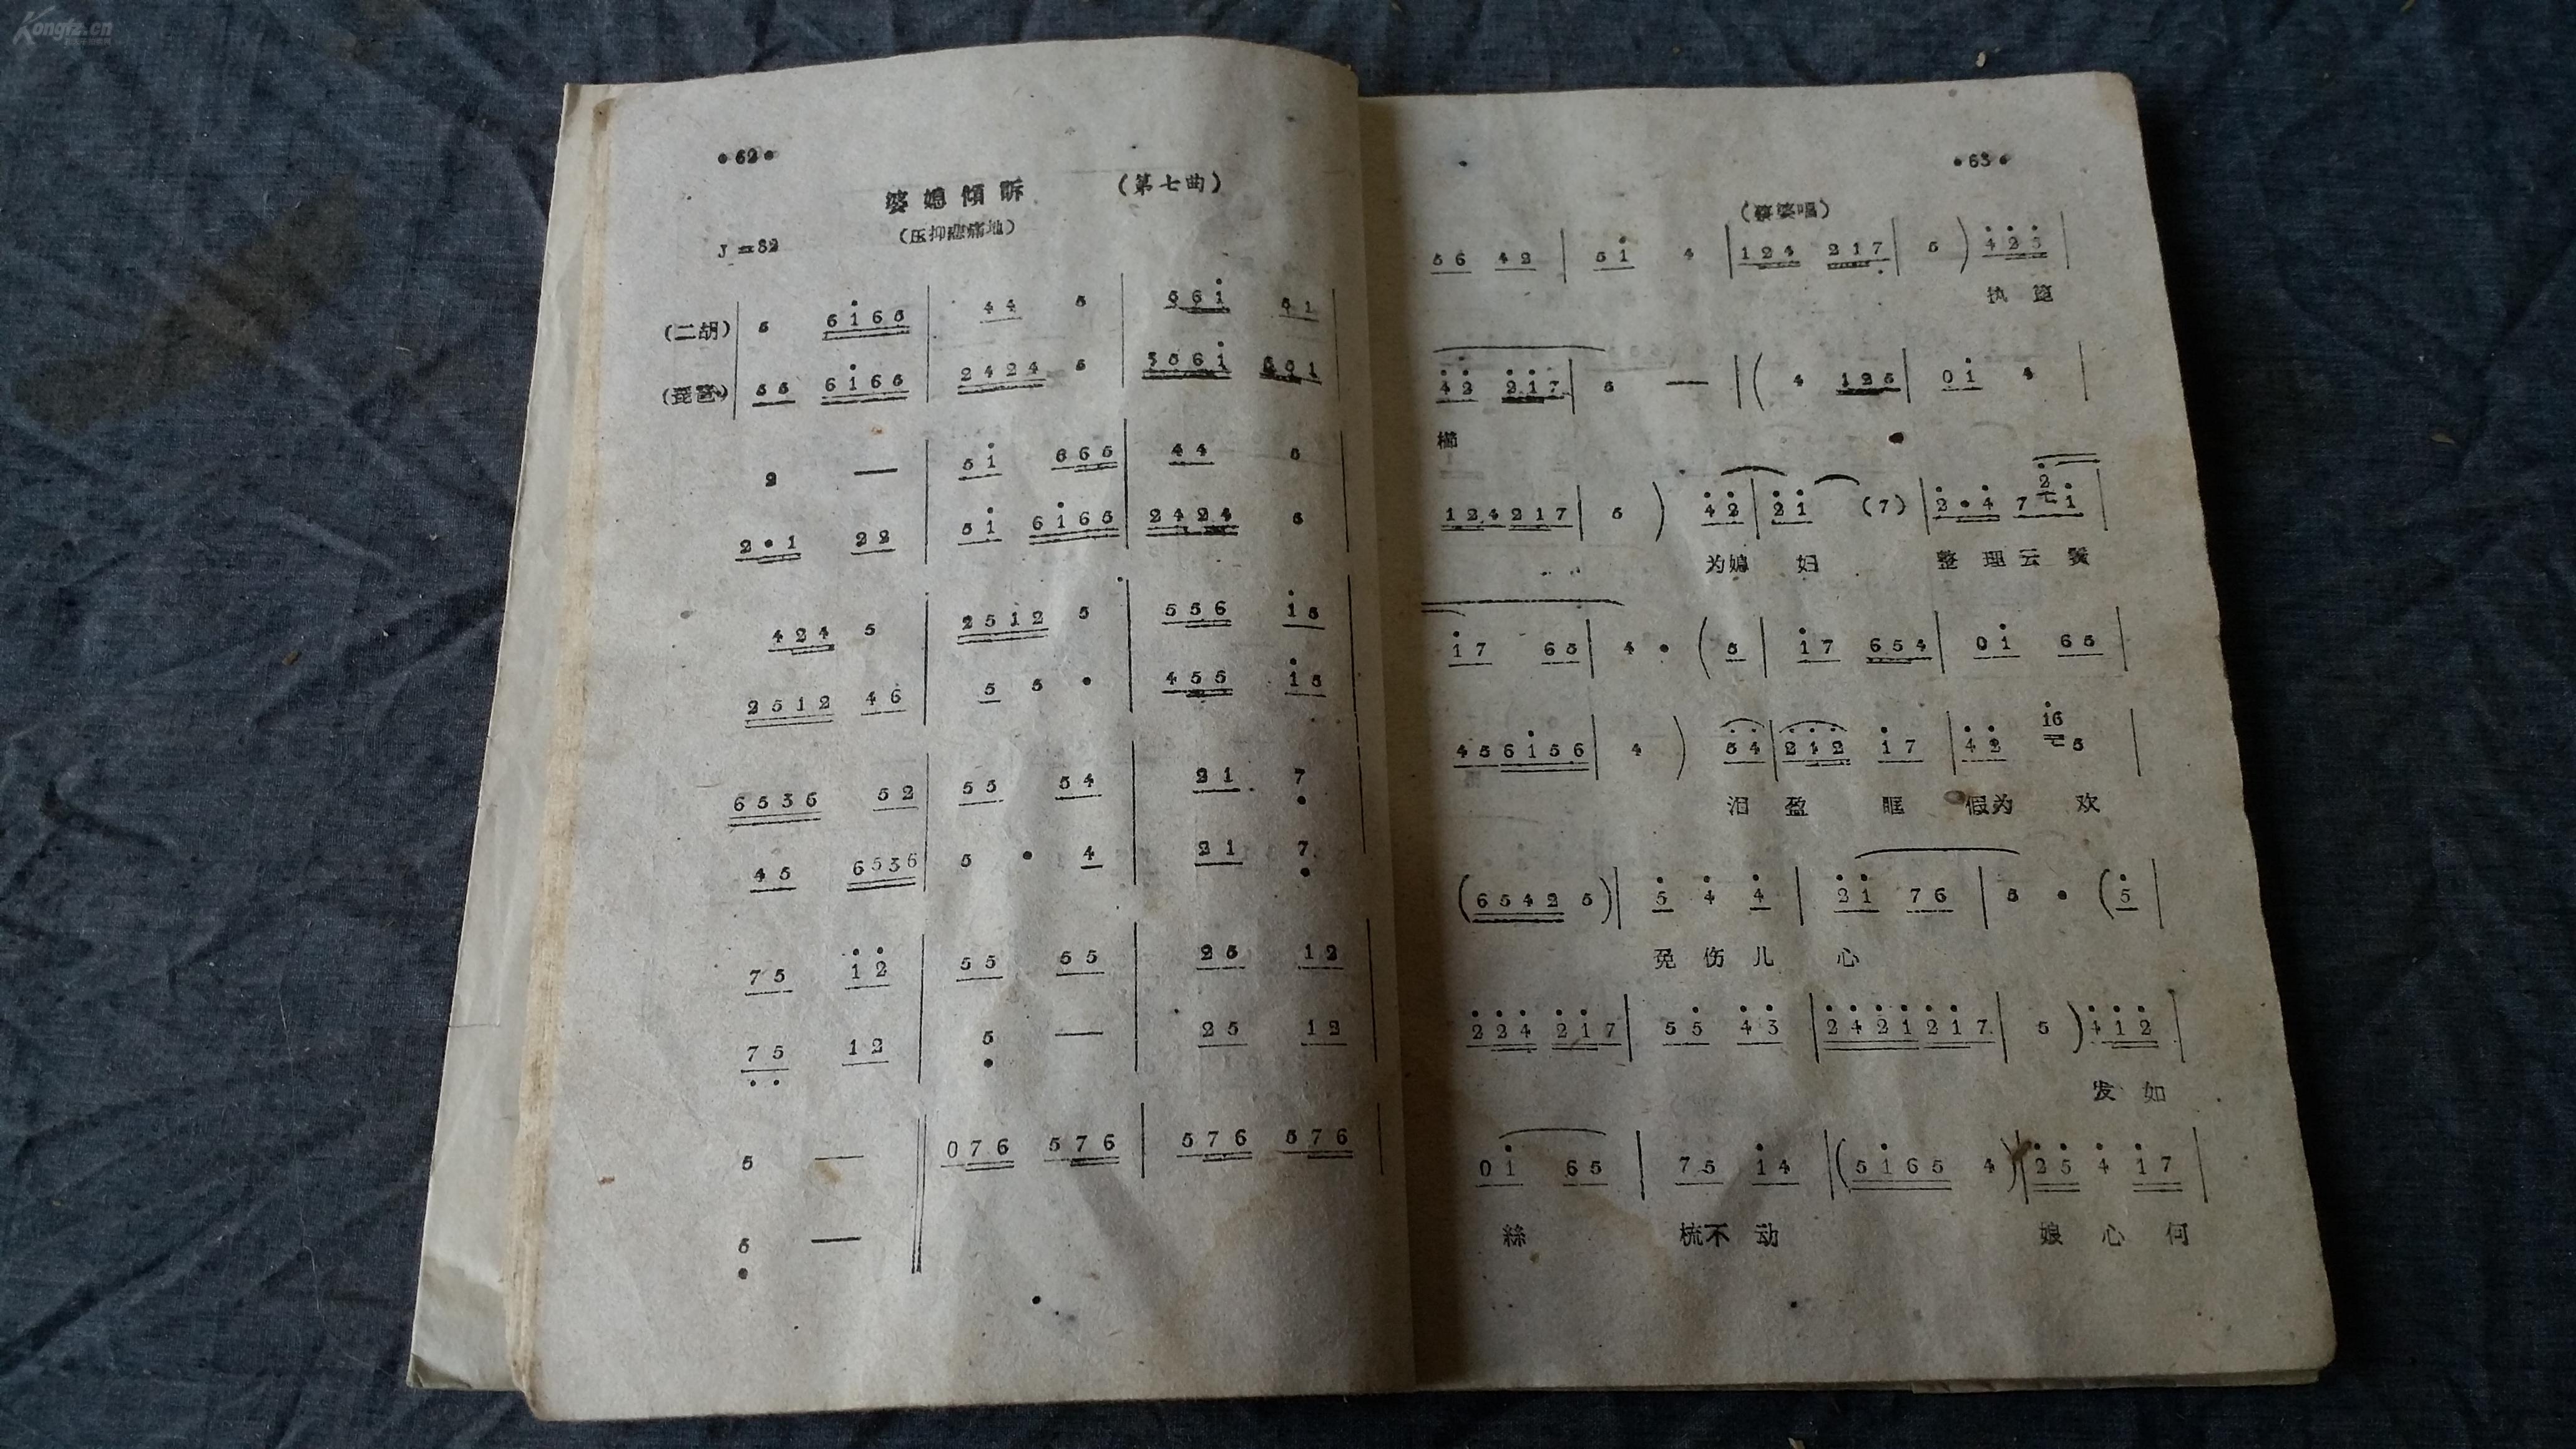 Kongfz.cn
•62•
婆媳傾訴 （第七曲）
（压抑悲痛地）
J=32
(二胡) | 5 6i65 | 44 5 | 56i 51 |
(琵琶) | 55 6i65 | 2424 5 | 356i 551 |
2 — | 5i 665 | 44 5 |
2•1 22 | 5i 6i65 | 2424 5 |
424 5 | 2512 5 | 556 i5 |
2512 46 | 5 5 • | 455 i5 |
6536 52 | 55 54 | 21 7 |
45 6536 | 5 • 4 | 21 7 |
75 i2 | 55 55 | 25 12 |
75 12 | 5 — | 25 12 |
5 — || 076 576 | 576 576 |
5 — ||
•63•
（蔡婆唱）
56 42 | 5i 4 | 124 217 | 5 ) 425 |
执篦
42 2i7 | 5 — | ( 4 125 | 0i 4 |
櫛
124217 | 5 ) 42 | 2i (7) | 2•4 7 2 i |
为媳 妇 整理云鬢
i7 65 | 4 • ( 5 | i7 654 | 0i 65 |
456i56 | 4 ) 54 | 2i2 i7 | 42 i6 5 |
泪 盈 眶 假为 欢
(6542 5) | 5 4 4 | 2i 76 | 5 • ( 5 |
免 伤 儿 心
224 2i7 | 55 43 | 242i2i7 | 5 ) 4i2 |
发 如
0i 65 | 75 i4 | (5i65 4) | 25 4 i7 |
絲 梳不 动 娘 心 何